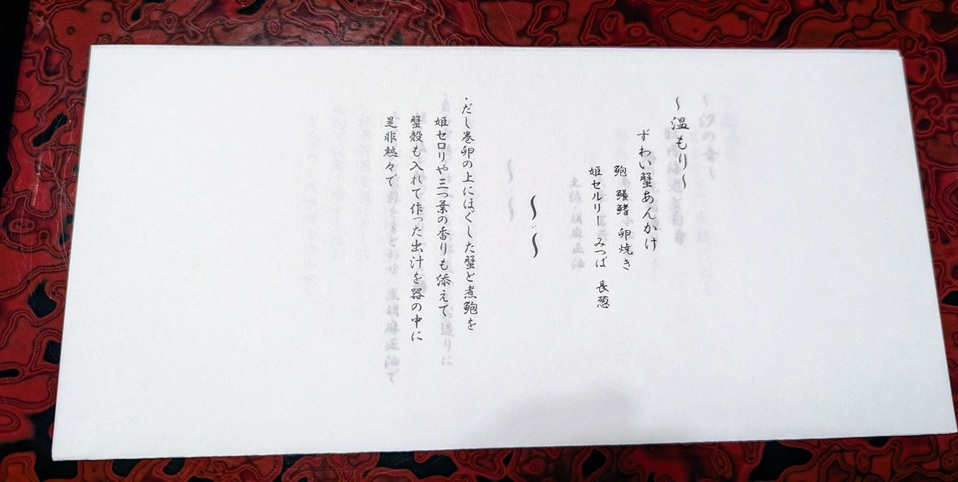 ～温もり～
ずわい蟹あんかけ
鮑 鱶鰭 卵焼き
姫セルリー みつば 長葱
～～
・だし巻卵の上にほぐした蟹と煮鮑を
姫セロリや三つ葉の香りも添えて
蟹殻も入れて作った出汁を器の中に
是非熱々で